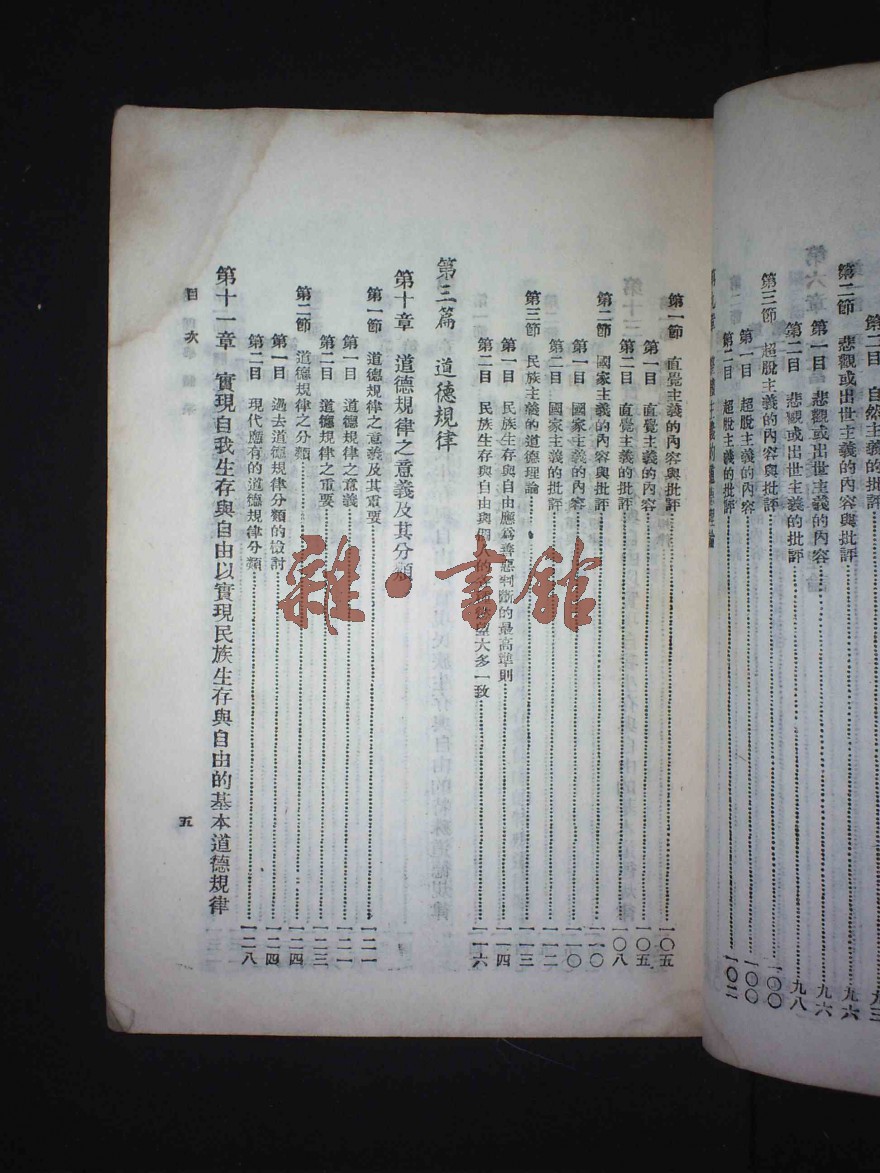 第二目　自然主義的　九三
第二節　悲觀或出世主義的內容與批評　九六
第一目　悲觀或出世主義的內容　九六
第二目　悲觀或出世主義的批評　九八
第三節　超脫主義的內容與批評　一〇〇
第一目　超脫主義的內容　一〇〇
第二目　超脫主義的批評　一〇二
第一節　直覺主義的內容與批評　一〇五
第一目　直覺主義的內容　一〇五
第二目　直覺主義的批評　一〇八
第二節　國家主義的內容與批評　一一〇
第一目　國家主義的內容　一一〇
第二目　國家主義的批評　一一二
第三節　民族主義的道德理論　一一三
第一目　民族生存與自由應爲善惡判斷的最高準則　一一四
第二目　民族生存與自由與個人的　大多一致　一一六
第三篇　道德規律
第十章　道德規律之意義及其分類
第一節　道德規律之意義及其重要　一二一
第一目　道德規律之意義　一二一
第二目　道德規律之重要　一二三
第二節　道德規律之分類　一二四
第一目　過去道德規律分類的檢討　一二四
第二目　現代應有的道德規律分類　一二八
第十一章　實現自我生存與自由以實現民族生存與自由的基本道德規律
目次　五
雜·書館